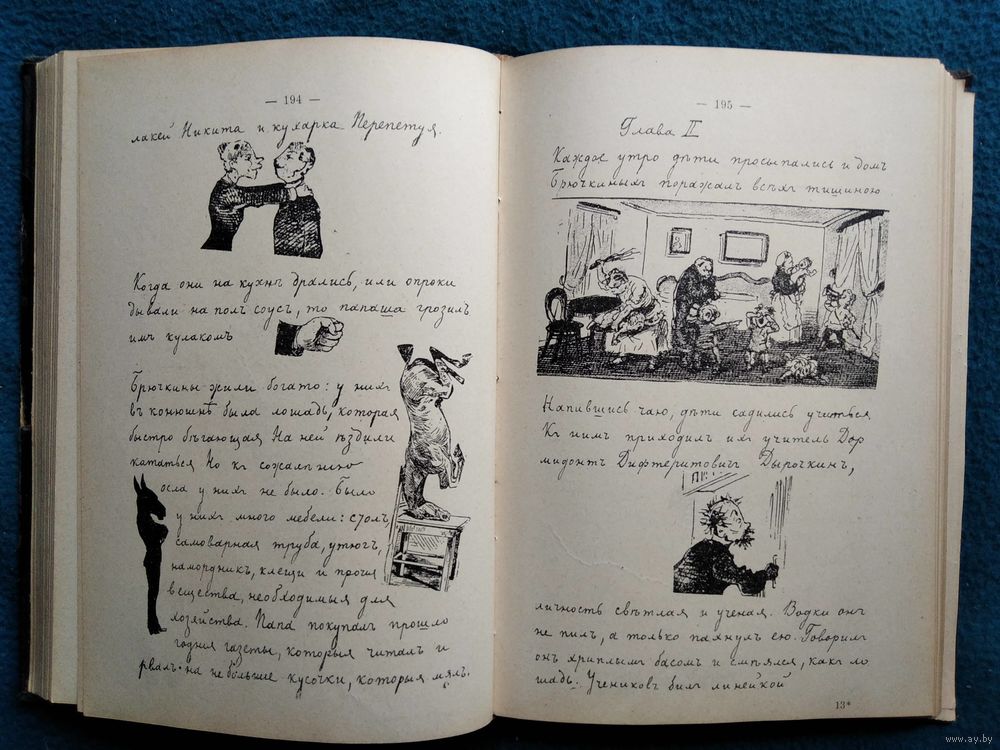 — 194 —
лакей Никита и кухарка Перепетуя.
Когда они на кухнѣ дрались, или опроки
дывали на полъ соусъ, то папаша грозилъ
имъ кулакомъ
Брючкины жили богато: у нихъ
въ конюшнѣ была лошадь, которая
быстро бѣгающая На ней ѣздили
кататься Но къ сожалѣнію
осла у нихъ не было. Было
у нихъ много мебели: столъ,
самоварная труба, утюгъ,
намордникъ, клещи и прочія
вещества, необходимыя для
хозяйства. Папа покупалъ прошло
годнія газеты, которыя читалъ и
рвалъ на не большіе кусочки, которыя мялъ.
— 195 —
Глава II
Каждое утро дѣти просыпались и домъ
Брючкиныхъ поражалъ всѣхъ тишиною
Напившись чаю, дѣти садились учиться
Къ нимъ приходилъ ихъ учитель Дор
мидонтъ Дифтеритовичъ Дырочкинъ,
личность свѣтлая и ученая. Водки онъ
не пилъ, а только пахнулъ ею. Говорилъ
онъ хриплымъ басомъ и смѣялся, какъ ло
шадь. Учениковъ билъ линейкой
13*
www.ay.by